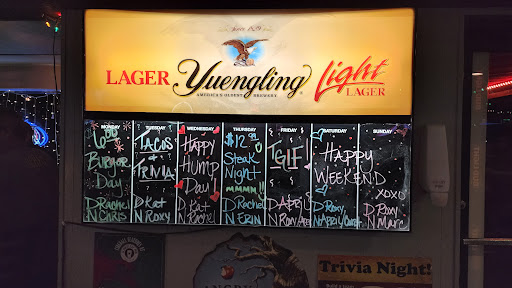 Since 1829
LAGER Yuengling Light
LAGER
AMERICA'S OLDEST BREWERY
MONDAY
Burger
Day
D Rachel
N Chris
TUESDAY
TACOS
&
TRIVIA
D Kat
N Roxy
WEDNESDAY
HAPPY
Hump
DAY!
D Kat
N Rachel
THURSDAY
Steak
Night
mmmm!!
D Rachel
N ERIN
FRIDAY
TGIF!
D APRIL
SATURDAY
SUNDAY
HAPPY
WEEKEND
XOXO
D Roxy
D Roxy
N Marc
Trivia Night!